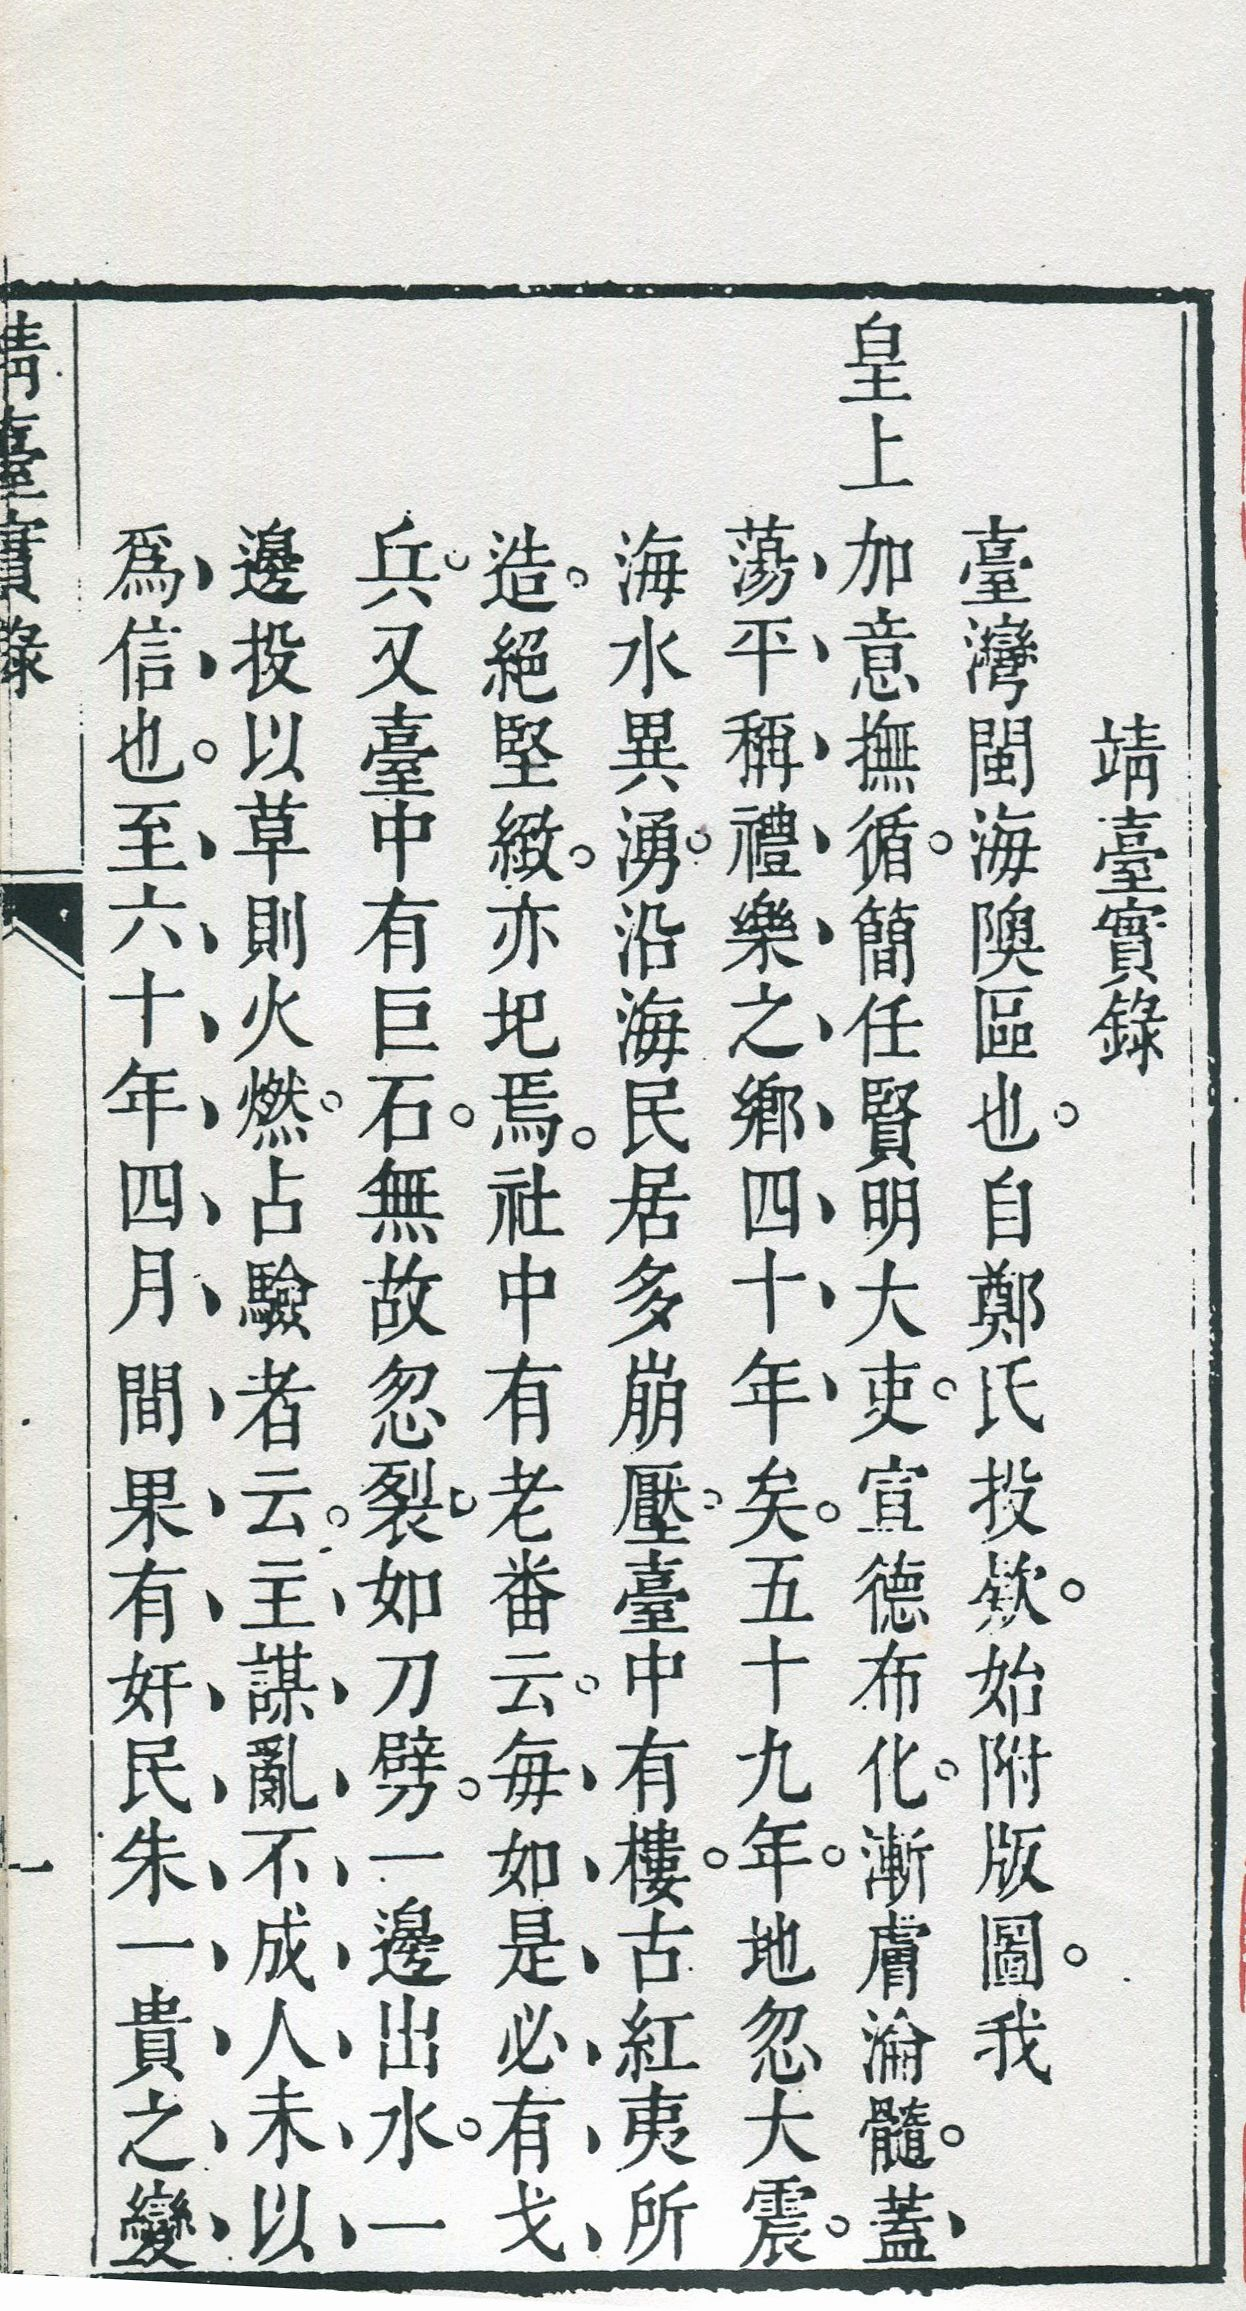 靖臺實錄
臺灣閩海隩區也。自鄭氏投欵。始附版圖。我
皇上加意撫循。簡任賢明大吏。宣德布化。漸膚淪髓。蓋、
蕩、平、稱、禮、樂、之、鄉、四、十、年、矣。五十九年。地忽大震。
海水異湧。沿海民居多崩壓。臺中有樓。古紅夷所
造。絕堅緻。亦圯焉。社中有老番云。每、如、是、必、有、戈、
兵。又臺中有巨石。無故忽裂。如刀劈。一邊出水。一
邊投以草則火燃。占驗者云。主、謀、亂、不、成、人、未、以、
爲、信、也。至、六、十、年、四、月、間、果、有、奸、民、朱、一、貴、之、變、
靖臺實錄
一